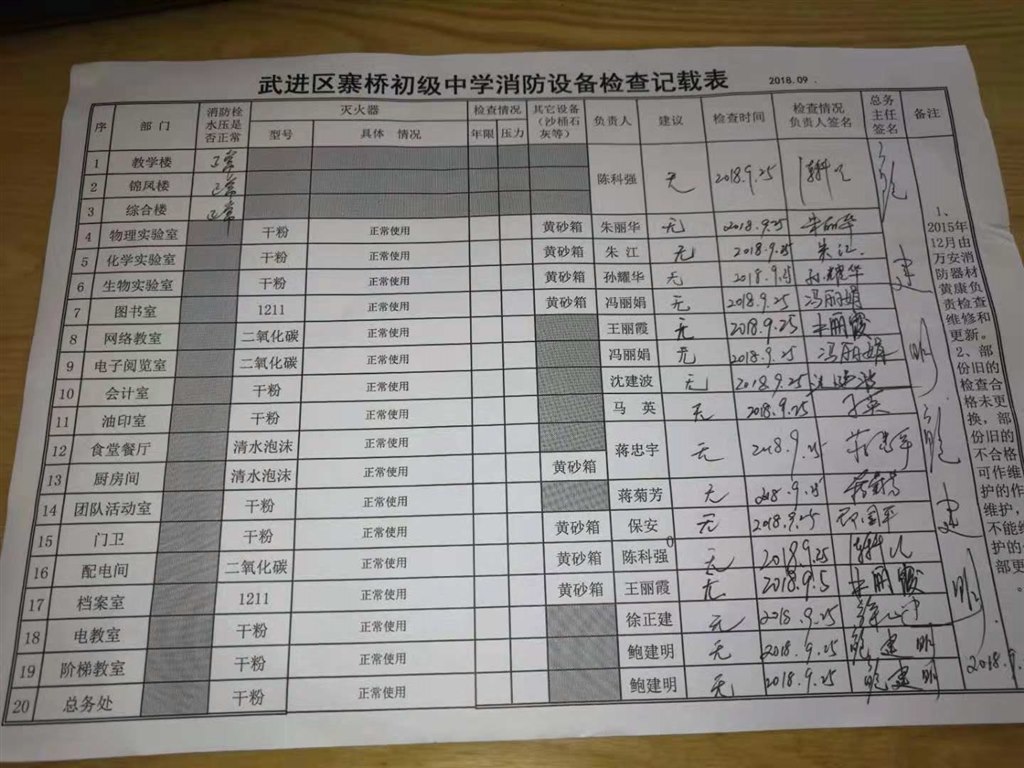 武进区寨桥初级中学消防设备检查记载表 2018.09.
序 部门 消防栓水压是否正常 灭火器 检查情况 其它设备(沙桶石灰等) 负责人 建议 检查时间 检查情况负责人签名 总务主任签名 备注
型号 具体 情况 年限 压力
1 教学楼 正常 陈科强 无 2018.9.25
2 锦凤楼 正常
3 综合楼 正常
4 物理实验室 干粉 正常使用 黄砂箱 朱丽华 无 2018.9.25 朱丽华
5 化学实验室 干粉 正常使用 黄砂箱 朱 江 无 2018.9.25 朱江
6 生物实验室 干粉 正常使用 黄砂箱 孙耀华 无 2018.9.25 孙耀华
7 图书室 1211 正常使用 黄砂箱 冯丽娟 无 2018.9.25 冯丽娟
8 网络教室 二氧化碳 正常使用 王丽霞 无 2018.9.25 王丽霞
9 电子阅览室 二氧化碳 正常使用 冯丽娟 无 2018.9.25 冯丽娟
10 会计室 干粉 正常使用 沈建波 无 2018.9.25
11 油印室 干粉 正常使用 马 英 无 2018.9.25 马英
12 食堂餐厅 清水泡沫 正常使用 蒋忠宇 无 2018.9.25
13 厨房间 清水泡沫 正常使用 黄砂箱
14 团队活动室 干粉 正常使用 蒋菊芳 无 2018.9.25 蒋菊芳
15 门卫 干粉 正常使用 黄砂箱 保安 无 2018.9.25
16 配电间 二氧化碳 正常使用 黄砂箱 陈科强 无 2018.9.25
17 档案室 1211 正常使用 黄砂箱 王丽霞 无 2018.9.5 王丽霞
18 电教室 干粉 正常使用 徐正建 无 2018.9.25
19 阶梯教室 干粉 正常使用 鲍建明 无 2018.9.25 鲍建明
20 总务处 干粉 正常使用 鲍建明 无 2018.9.25 鲍建明
鲍
建
明
鲍
建
明
2018.9.
1、
2015年
12月由
万安消
防器材
黄康负
责检查
维修和
更新。
2、部
份旧的
检查合
格未更
换,部
份旧的
不合格
可作维
护的作
维护,
不能维
护的
部更
。